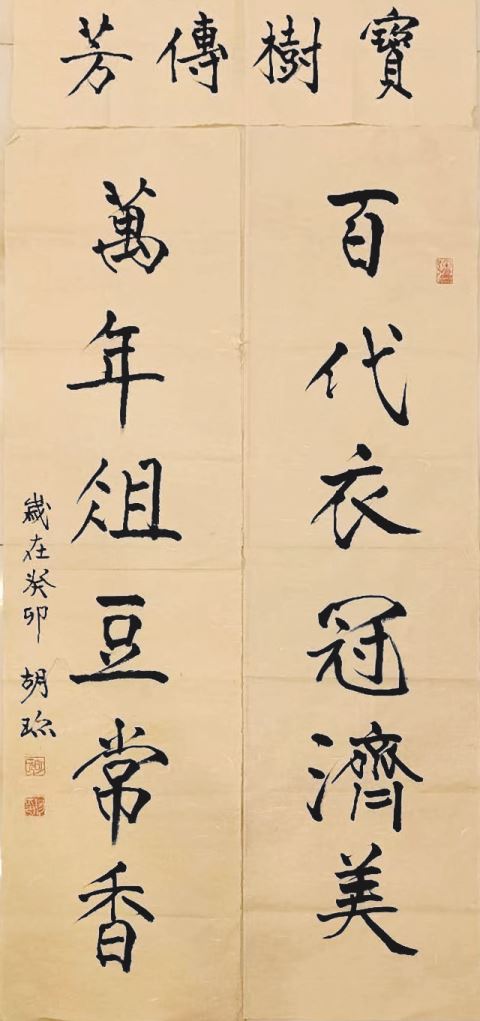 寶樹傳芳
百代衣冠濟美
萬年俎豆常香
歲在癸卯 胡